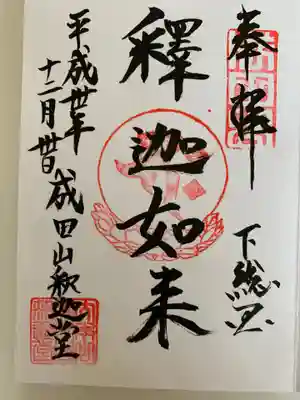 奉拝
下総国
釋迦如来
平成卅年
十二月卅日 成田山釈迦堂